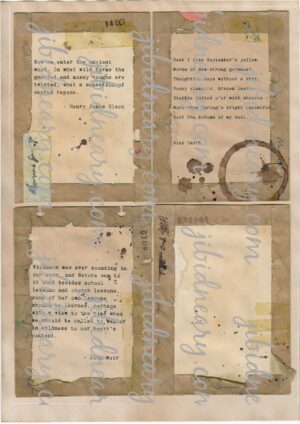 14 OCT
Now we enter the ancient
wood. In what wild forms the
gnarled and mossy boughs are
twisted, what a sensation of
sacred repose.
- Henry James Slack
Best I love September's yellow,
Morns of dew strung gossamer,
Thoughtful days without a stir,
Rooky clamours, brazen leaves,
Stubble dotted o'er with sheaves -
More than Spring's bright
Suit the Autumn of my soul.
Alex
Kindness was ever sounding in
our ears, and Nature saw to
it that besides school
lessons and church lessons
some of her own lessons
should be learned, perhaps
with a view to the time when
we should be called to wander
in wildness to our heart's
content.
- John Muir
jibidheary.com
jibidheary.com
jibidheary.com